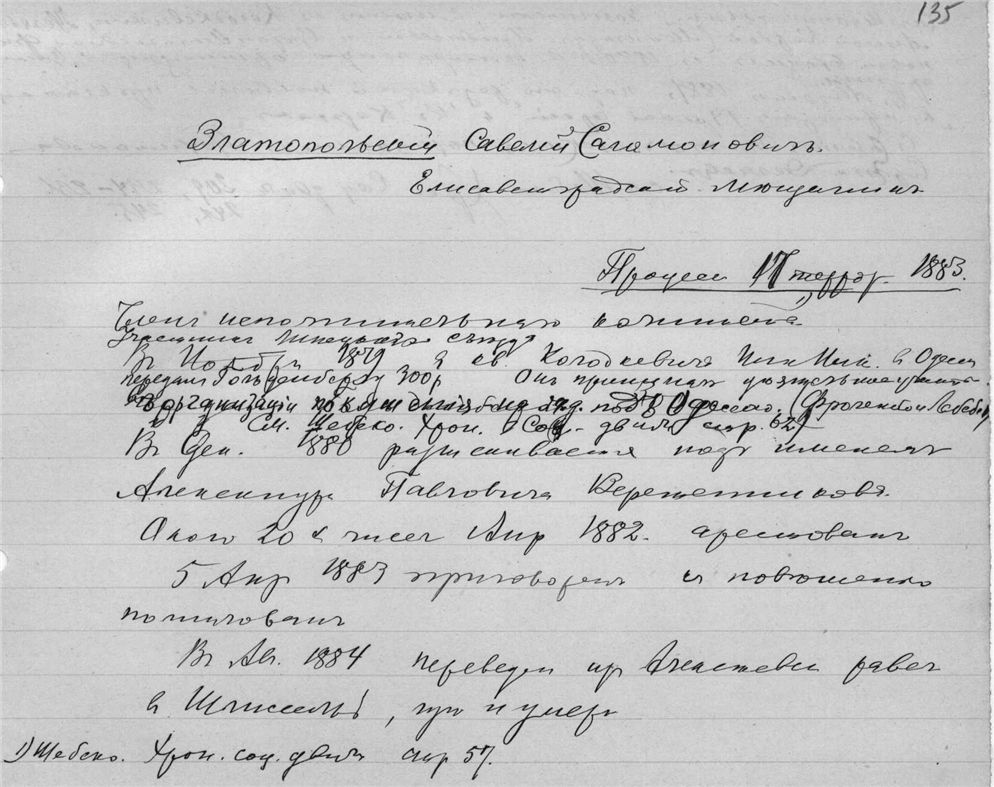 135
Златопольскій Савелій Саломоновичъ.
Елисаветградскій мѣщанинъ
Процесс 17 террор. 1883.
Членъ исполнительнаго комитета 1)
Участникъ Липецкаго съѣзда
Въ Ноябрѣ 1879 у кв. Колодкевича въ Одессѣ
передалъ Гольденбергу 300 р Онъ принималъ дѣятельное участ.
въ организаціи подъ Одессой, (Фроленко и Лебедев)
См. Шебеко. Хрон. Соц. движ стр. 62)
Въ Ден. 1880 разыскивается подъ именемъ
Александра Павловича Верещетникова.
Около 20х чисел Апр 1882. арестованъ
5 Апр 1883 приговоренъ къ повѣшенію
помилованъ
Въ Ав. 1884 переведен из Алексѣевск равел
в Шлиссельб, гдѣ и умеръ
1) Шебеко. Хрон. соц. движ стр 57.